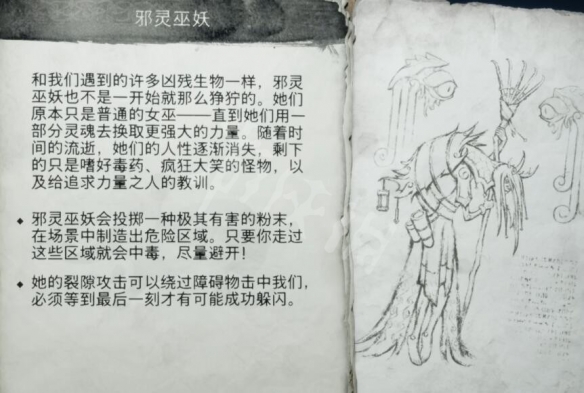 邪灵巫妖
和我们遇到的许多凶残生物一样，邪灵
巫妖也不是一开始就那么狰狞的。她们
原本只是普通的女巫——直到她们用一
部分灵魂去换取更强大的力量。随着时
间的流逝，她们的人性逐渐消失，剩下
的只是嗜好毒药、疯狂大笑的怪物，以
及给追求力量之人的教训。
◆ 邪灵巫妖会投掷一种极其有害的粉末，
在场景中制造出危险区域。只要你走过
这些区域就会中毒，尽量避开！
◆ 她的裂隙攻击可以绕过障碍物击中我们，
必须等到最后一刻才有可能成功躲闪。